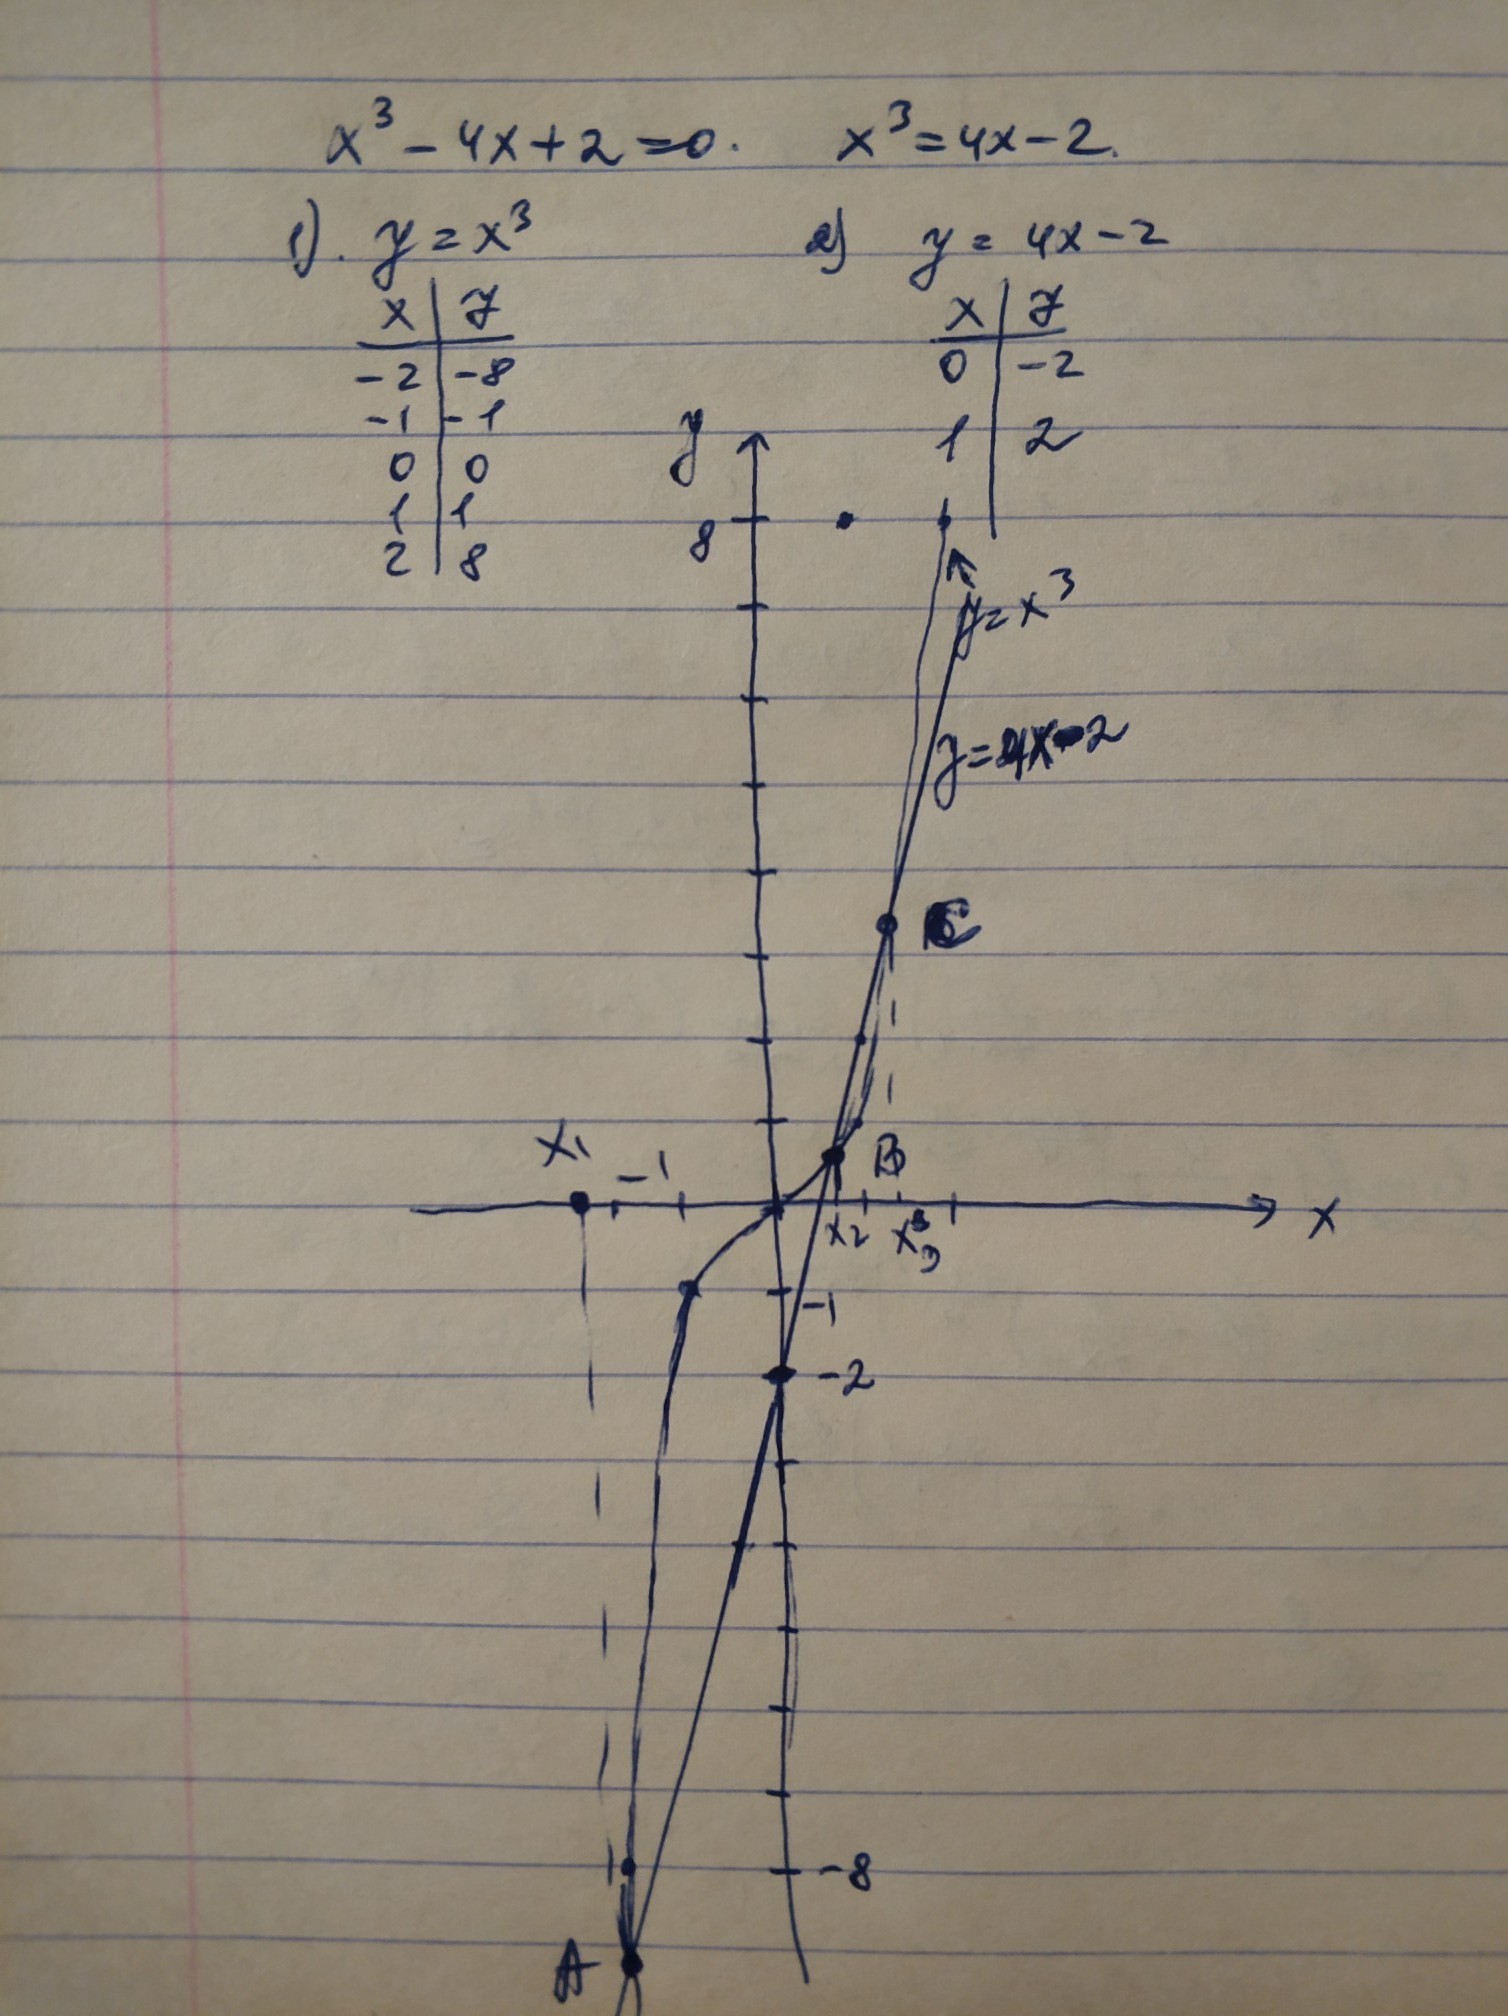 x³ - 4x + 2 = 0. x³ = 4x - 2.
1). y = x³ 2) y = 4x - 2
x y x y
-2 -8 0 -2
-1 -1
y 1 2
0 0
1 1
8
2 8
y = x³
y = 4x - 2
C
x₁ -1 B
x₂ x₃ x
-1
-2
-8
A